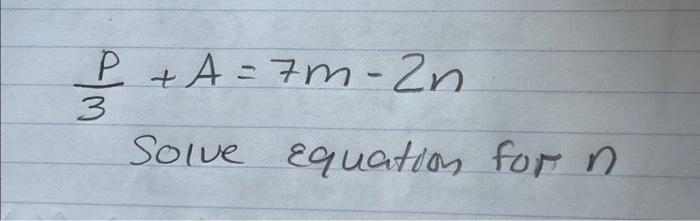 P/3 + A = 7m - 2n
Solve equation for n